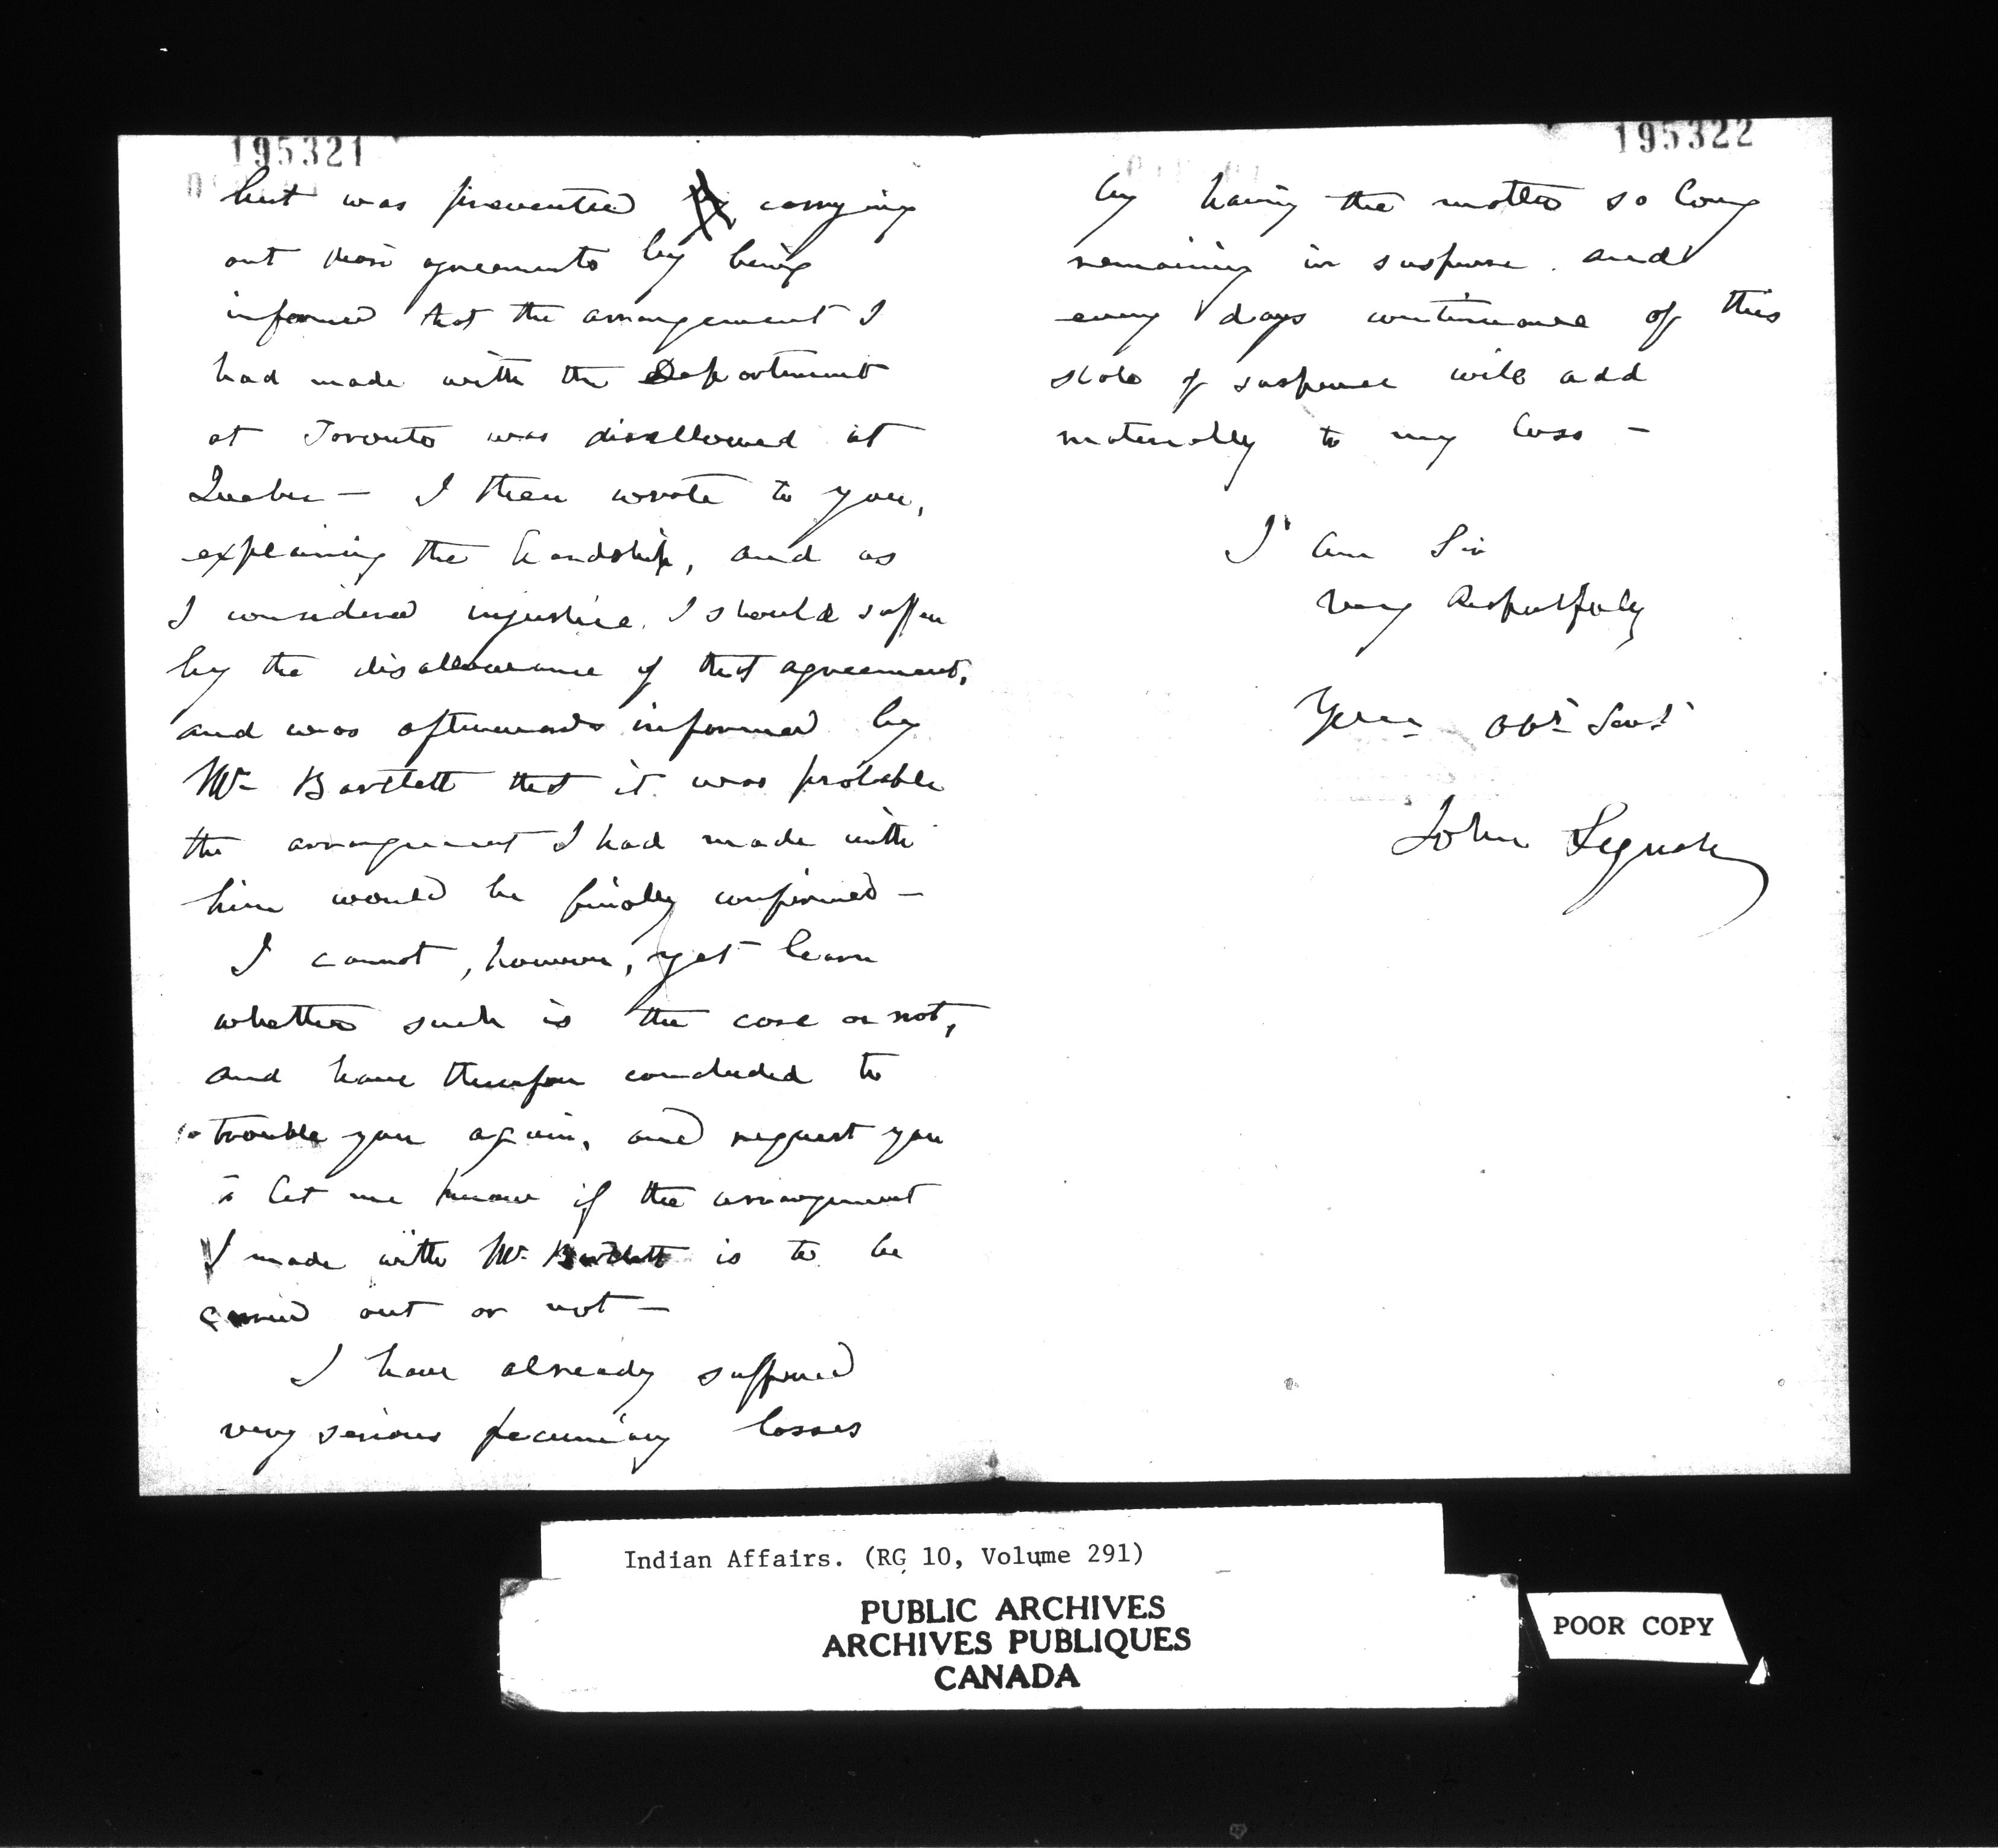 195321
but was prevented carrying
out their agreements by being
informed that the arrangement I
had made with the Department
at Toronto was disallowed at
Quebec — I then wrote to you,
explaining the hardship, and as
I considered injustice, I should suffer
by the disallowance of that agreement,
and was afterwards informed by
Mr Bartlett that it was probable
the arrangement I had made with
him would be finally confirmed —
I cannot, however, yet learn
whether such is the case or not,
and have therefore concluded to
to trouble you again, and request you
to let me know if the arrangement
I made with Mr. Bartlett is to be
carried out or not —
I have already suffered
very serious pecuniary losses
195322
by having the matter so long
remaining in suspense. and
every days continuance of this
state of suspense will add
materially to my loss —
I am Sir
Very Respectfully
Your Obt Servt
John
Indian Affairs. (RG 10, Volume 291)
PUBLIC ARCHIVES
ARCHIVES PUBLIQUES
CANADA
POOR COPY